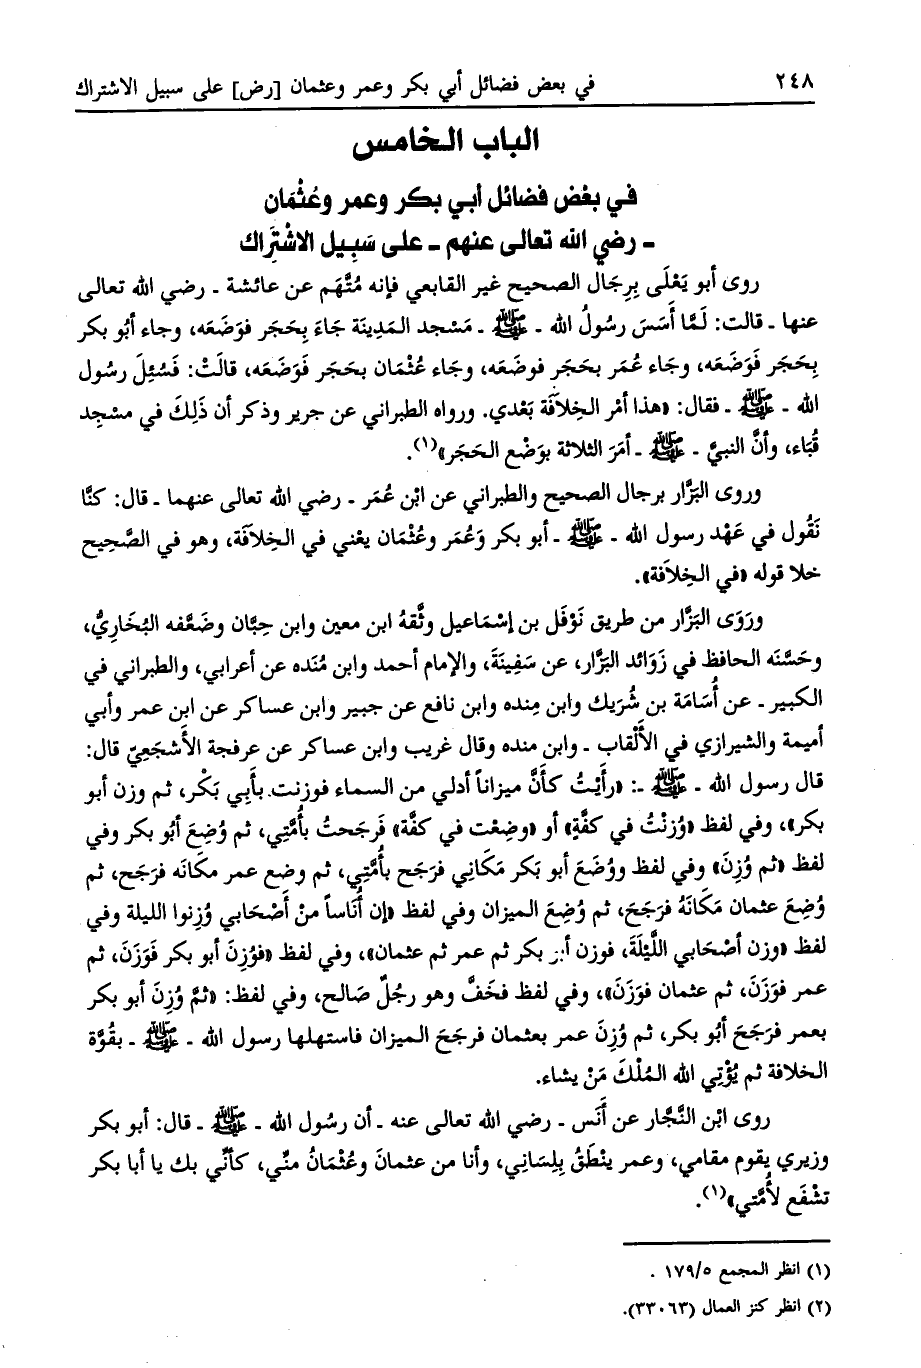 ٢٤٨
في بعض فضائل أبي بكر وعمر وعثمان [رض] على سبيل الاشتراك
الباب الخامس
في بعْض فضائل أبي بكر وعمر وعُثْمَان
ـ رضي الله تعالى عنهم ـ على سَبِيل الاشْتِرَاك
روى أبو يَعْلَى بِرِجَال الصحيح غير القابعي فإنه مُتَّهَم عن عائشة ـ رضي الله تعالى
عنها ـ قالت: لَمَّا أَسَسَ رسُولُ الله ـ ﷺ ـ مَسْجد المَدِينَة جَاءَ بِحَجَر فَوَضَعَه، وجاء أبُو بكر
بِحَجَر فَوَضَعَه، وجَاء عُمَر بحَجَر فوضَعَه، وجَاء عُثْمَان بحَجَر فَوَضَعَه، قالَتْ: فَسُئِلَ رسُول
الله ـ ﷺ ـ فقال: «هذا أمْر الخِلاَفَة بَعْدي. ورواه الطبراني عن جرير وذكر أن ذَلِكَ في مسْجِد
قُبَاء، وأنَّ النبيَّ ـ ﷺ ـ أمَرَ الثلاثة بوَضْع الحَجَر»(١).
وروى البَزَّار برجال الصحيح والطبراني عن ابْن عُمَر ـ رضي الله تعالى عنهما ـ قال: كنَّا
نَقُول في عَهْد رسول الله ـ ﷺ ـ أبو بكر وَعُمَر وعُثْمَان يعْني في الخِلافَة، وهو في الصَّحِيح
خلا قوله «في الخِلاَفة».
ورَوَى البَزَّار من طريق نَوْفَل بن إسْمَاعيل وثَّقهُ ابن معين وابن حِبَّان وضَعَّفه البُخَارِيُّ،
وحَسَّنَه الحافظ في زَوَائد البَزَّار، عن سَفِينَةَ، والإمام أحمد وابن مُنَده عن أعرابي، والطبراني في
الكبير ـ عن أُسَامَة بن شُرَيك وابن مِنده وابن نافع عن جبير وابن عساكر عن ابن عمر وأبي
أميمة والشيرازي في الأَلْقاب ـ وابن منده وقال غريب وابن عساكر عن عرفجة الأَشجَعِيّ قال:
قال رسول الله ـ ﷺ ـ: «رأَيْتُ كأَنَّ ميزاناً أدلي من السماء فوزنت بأَبِي بَكْر، ثم وزن أبو
بكر»، وفي لفظ «وُزنْتُ في كفَّةٍ» أو «وضِعْت في كفَّة» فَرَجحتُ بأُمَّتِي، ثم وُضِعَ أبُو بكر وفي
لفظ «ثم وُزِنَ» وفي لفظ ووُضَعَ أبو بَكر مَكَانِي فرَجَح بأُمَّتِي، ثم وضع عمر مكَانَه فرَجَح، ثم
وُضِعَ عثمان مَكَانَهُ فرَجَحَ، ثم وُضِعَ الميزان وفي لفظ «إن أُنَاساً منْ أَصْحَابي وُزِنوا الليلة وفي
لفظ «وزن أصْحَابي اللَّيْلَةَ، فوزن أبو بكر ثم عمر ثم عثمان»، وفي لفظ «فوُزِنَ أبو بكر فَوَزَنَ، ثم
عمر فوَزَنَ، ثم عثمان فوَزَنَ»، وفي لفظ فخَفَّ وهو رجُلٌ صَالح، وفي لفظ: «ثمَّ وُزِنَ أبو بكر
بعمر فرَجَحَ أبُو بكر، ثم وُزِنَ عمر بعثمان فرجَحَ الميزان فاستهلها رسول الله ـ ﷺ ـ بقُوَّة
الخلافة ثم يُؤْتِي الله المُلْكَ مَنْ يشاء.
روى ابْن النَّجَّار عن أَنَس ـ رضي الله تعالى عنه ـ أن رسُول الله ـ ﷺ ـ قال: أبو بكر
وزيري يقوم مقامي، وعمر ينْطَقُ بِلِسَانِي، وأنا من عثمانَ وعُثْمَانُ منِّي، كأنِّي بك يا أبا بكر
تشْفَع لأُمَّتي»(١).
(١) انظر المجمع ١٧٩/٥ .
(٢) انظر كنز العمال (٣٣٠٦٣).